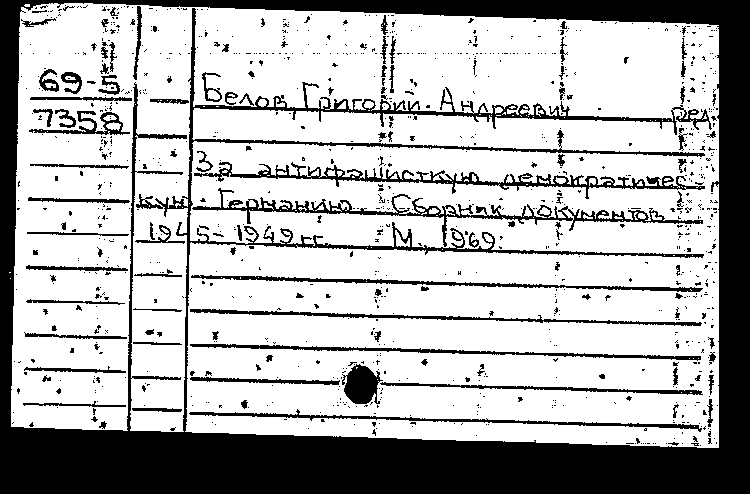 69-5
7358
Белов, Григорий Андреевич, ред.
За антифашистскую демократичес-
кую Германию. Сборник документов
1945-1949 гг. М., 1969.